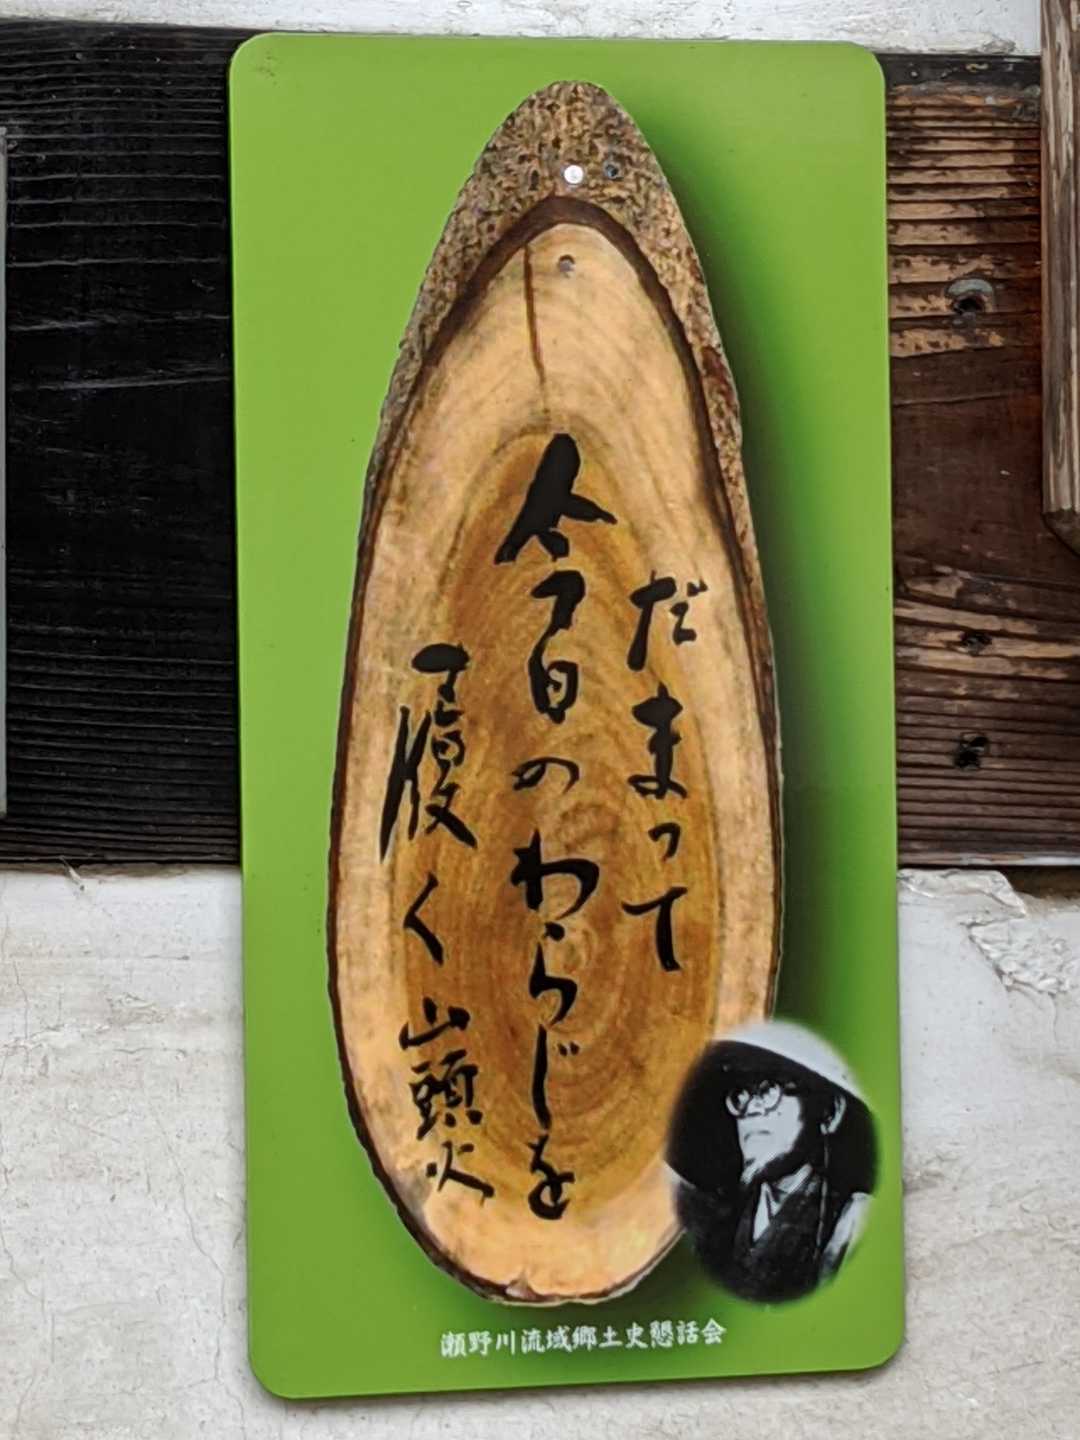 だまって
今日のわらじを
履く 山頭火
瀬野川流域郷土史懇話会